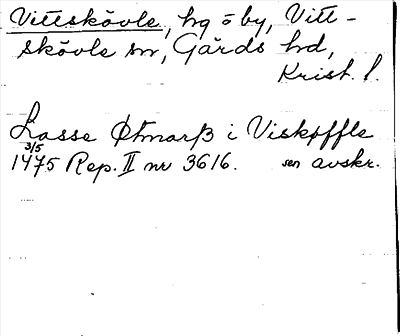 Vittskövle, hg o by, Vitt-
skövle sn, Gärds hd,
Krist. l.
Lasse Øtmarß i Viskøffle
3/5
1475 Rep. II nr 3616. sen avskr.